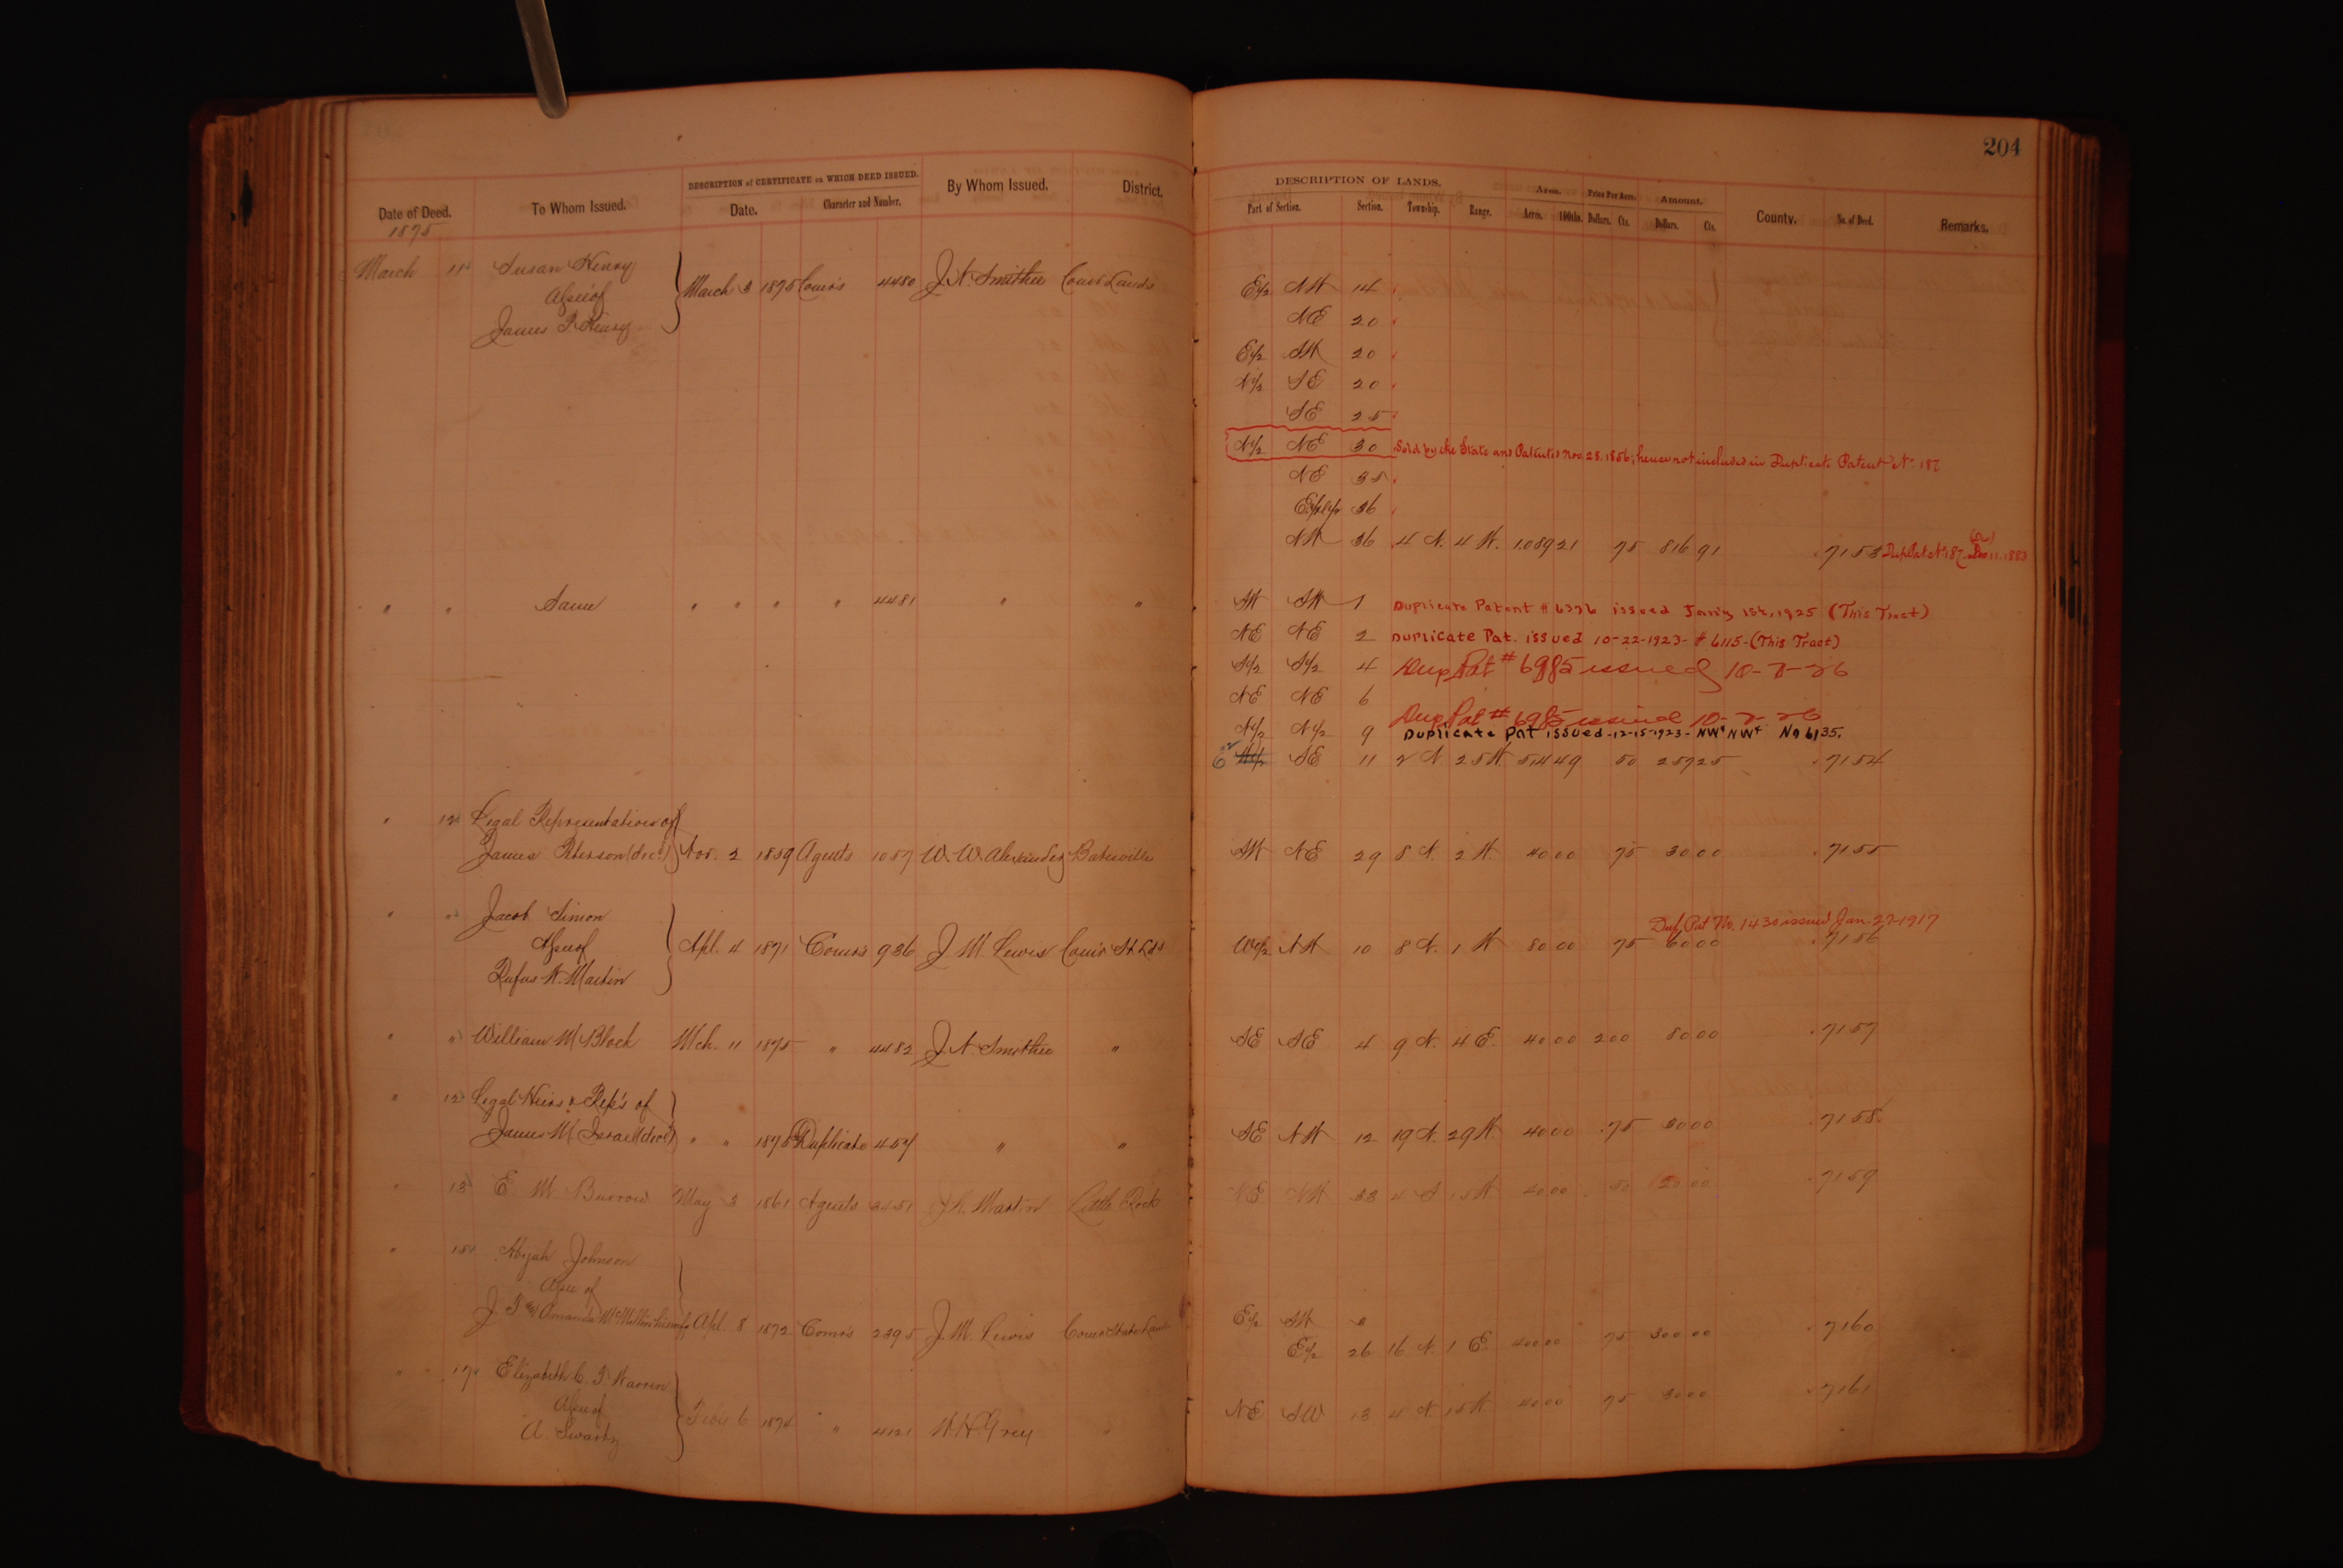 204
DESCRIPTION of CERTIFICATE on WHICH DEED ISSUED.
Date of Deed. To Whom Issued. Date. Character and Number. By Whom Issued. District.
1875
March 11 Susan Henry March 3 1875 Com'rs 4480 J. N. Smithee Com'r Lands
Assee of
James P. Henry
" " Same " " " " 4481 " "
" 12 Legal Representatives of
James Peterson (dec'd) Nov. 2 1859 Agents 1057 W. W. Alexander Batesville
" " Jacob Simon
Assee of Apl. 4 1871 Com'rs 936 J. M. Lewis Com'r St Lds
Rufus W. Martin
" " William M Block Mch. 11 1875 " 4482 J. N. Smithee "
" 12 Legal Heirs & Rep's of
James M Israel (dec'd) " " 1875 Duplicate 457 " "
" 13 E M Burrow May 3 1861 Agents 3451 Martin Little Rock
" 15 Abijah Johnson
Assee of
J. T. & Amanda McMillin Apl. 8 1872 Com'rs 2395 J. M. Lewis Com'r State Land
" 17 Elizabeth C. T. Warren
Assee of 6 1874 " 4121 W. H. Grey "
A. Swartz
DESCRIPTION OF LANDS. Area. Price Per Acre. Amount.
Part of Section. Section. Township. Range. Acres. 100ths. Dollars. Cts. Dollars. Cts. County. No. of Deed. Remarks.
E1/2 NW 14
NE 20
E1/2 SW 20
N1/2 SE 20
SE 25
N1/2 NE 30 Sold by the State and Patented Nov. 28. 1856; hence not included in Duplicate Patent No 187
NE 35
E1/2 36
NW 36 4 N. 4 W. 1.089 21 75 816 91 7153 Dup Pat No 187. Dec 11. 1883
SW SW 1 Duplicate Patent # 6376 issued Jan'y 1st, 1925 (This Tract)
NE NE 2 Duplicate Pat. issued 10-22-1923- # 6115-(This Tract)
S1/2 S1/2 4 Dup Pat # 6985 issued 10-7-26
NE NE 6
Dup Pat # 6985 issued 10-7-26
N1/2 N1/2 9 Duplicate Pat issued-12-15-1923- NW4 NW4 No 6135.
E2 W1/2 SE 11 2 N 25 W. 514 49 50 257 25 7154
SW NE 29 8 N. 2 W. 40 00 75 30 00 7155
Dup Pat No. 1430 issued Jan. 27-1917
W1/2 NW 10 8 N. 1 W 80 00 75 60 00 7156
SE SE 4 9 N. 4 E. 40 00 2 00 80 00 7157
SE NW 12 19 N. 29 W. 40 00 .75 30 00 7158
NE NW 33 4 S 15 W. 40 00 50 20 00 7159
E1/2 SW
E1/2 26 16 N. 1 E. 400 00 75 300 00 7160
NE SW 13 4 N. 15 W. 40 00 75 30 00 7161